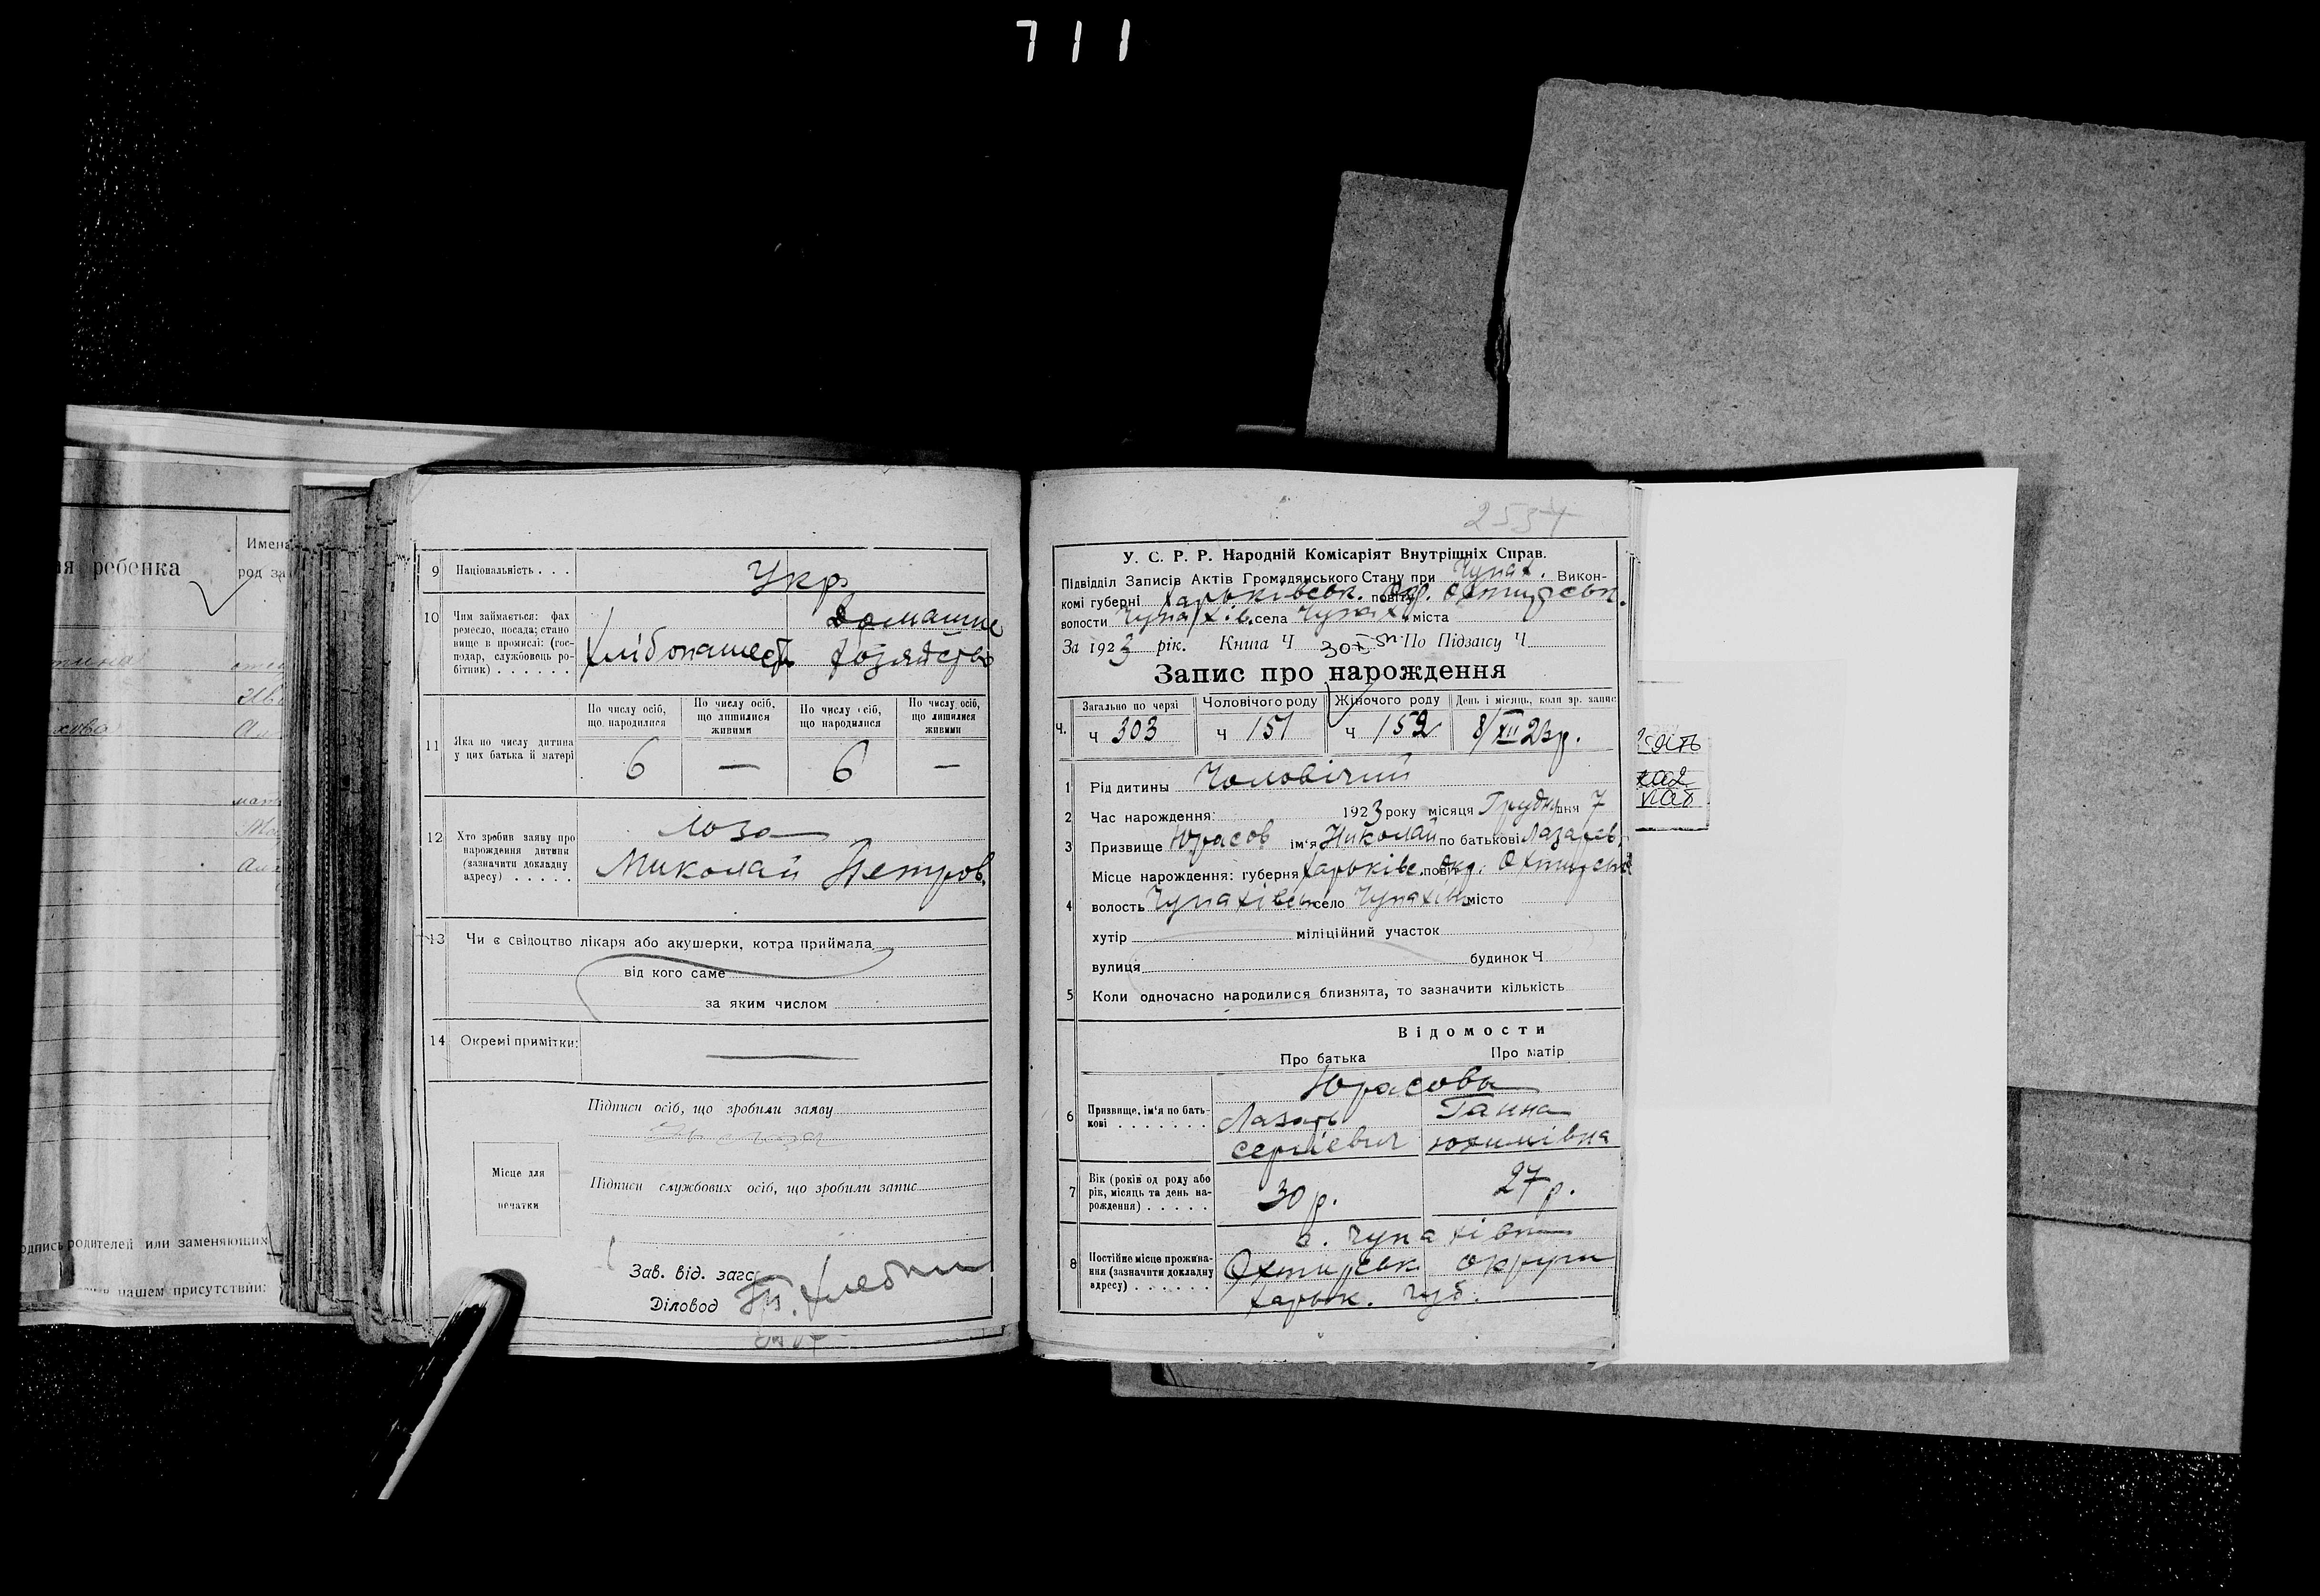 711
ребенка
Имена
род за
одпись родителей или заменяющих
нашем присутствии:
9 Національність . . .
Укр
10 Чим займається: фах
ремесло, посада; стано
вище в промислі: (гос-
подар, службовець ро-
бітник) . . . . . .
Домашнє
Хліборашеств Хозяйство
11 Яка по числу дитина
у цих батька й матері
По числу осіб,
що народилися
По числу осіб,
що лишилися
живими
По числу осіб,
що народилися
По числу осіб,
що лишилися
живими
6 — 6 —
12 Хто зробив заяву про
нарождення дитини
(зазначити докладну
адресу) . . . . .
Лоза
Миколай Петров.
13 Чи є свідоцтво лікаря або акушерки, котра приймала
від кого саме
за яким числом
14 Окремі примітки:
Підписи осіб, що зробили заяву
Місце для
печатки
Підписи службових осіб, що зробили запис
Зав. від. загс
Діловод
2534
У. С. Р. Р. Народній Комісаріят Внутрішніх Справ.
Підвідділ Записів Актів Громадянського Стану при Чупах. Викон-
комі губерні Харьковськ. повіту Окр. Охтирськ.
волости Чупахів. села Чупахів. міста
За 1923 рік. Книга Ч По Підзагсу Ч
Запис про нарождення
Ч.
Загально по черзі
Чоловічого роду
Жіночого роду
День і місяць, коли зр. запис
ч 303
ч 151
ч 152
8/XII 23р.
1 Рід дитины Чоловічий
2 Час нарождення: 1923 року місяця Грудня дня 7
3 Призвище Юрасов ім'я Николай по батькові Лазарев.
Місце нарождення: губерня Харьківс. повіт окр. Охтирськ
4 волость Чупахівськ село Чупахівка місто
хутір міліційний участок
вулиця будинок Ч
5 Коли одночасно народилися близнята, то зазначити кількість
Відомости
Про батька Про матір
6 Призвище, ім'я по бать-
кові . . . . . . . .
Юрасови
Лазарь Ганна
Сергіевич Юхимівна
7 Вік (років од роду або
рік, місяць та день на-
рождення) . . . . .
30 р. 27 р.
8 Постійне місце прожива-
ння (зазначити докладну
адресу) . . . . . . .
с. Чупахівки
Охтирськ округи
Харьк. губ.